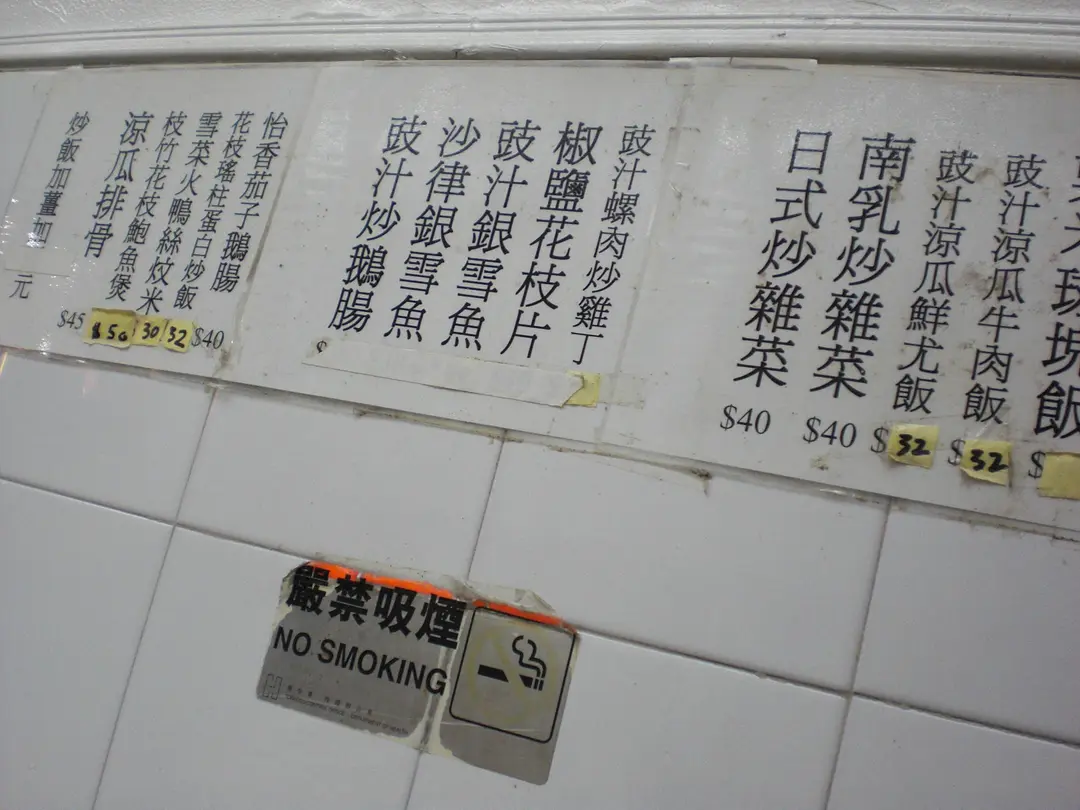 班塊飯
$
豉汁涼瓜牛肉飯
$32
豉汁涼瓜鮮尤飯
$32
南乳炒雜菜
$40
日式炒雜菜
$40
豉汁螺肉炒雞丁
椒鹽花枝片
豉汁銀雪魚
沙律銀雪魚
豉汁炒鵝腸
怡香茄子鵝腸
$40
花枝瑤柱蛋白炒飯
32
雪菜火鴨絲炆米
30
枝竹花枝鮑魚煲
$50
涼瓜排骨
$45
炒飯加薑加 元
嚴禁吸煙
NO SMOKING